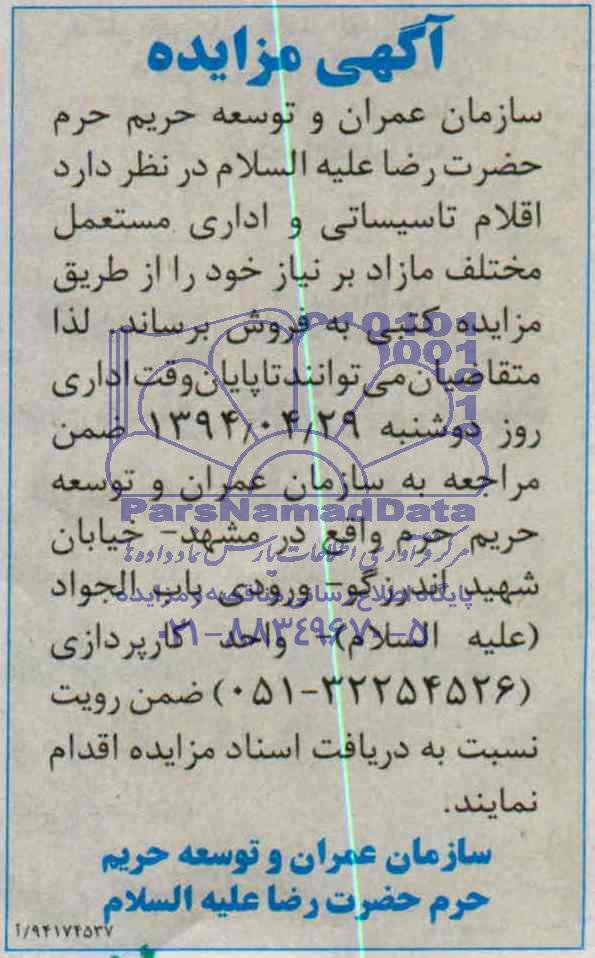 آگهی مزایده
سازمان عمران و توسعه حریم حرم
حضرت رضا علیه السلام در نظر دارد
اقلام تاسیساتی و اداری مستعمل
مختلف مازاد بر نیاز خود را از طریق
مزایده کتبی به فروش برساند. لذا
متقاضیان می‌توانند تا پایان وقت اداری
روز دوشنبه ۱۳۹۴/۰۴/۲۹ ضمن
مراجعه به سازمان عمران و توسعه
حریم حرم واقع در مشهد- خیابان
شهید اندرزگو- ورودی باب الجواد
(علیه السلام)- واحد کارپردازی
(۰۵۱-۳۲۲۵۴۵۲۶) ضمن رویت
نسبت به دریافت اسناد مزایده اقدام
نمایند.
سازمان عمران و توسعه حریم
حرم حضرت رضا علیه السلام
۹۴۱۷۴۵۳۷/آ
ParsNamadData
مرکز فرآوری اطلاعات پارس نماد داده ها
پایگاه اطلاع رسانی مناقصه و مزایده
۰۲۱-۸۸۳۴۹۶۷۰-۵